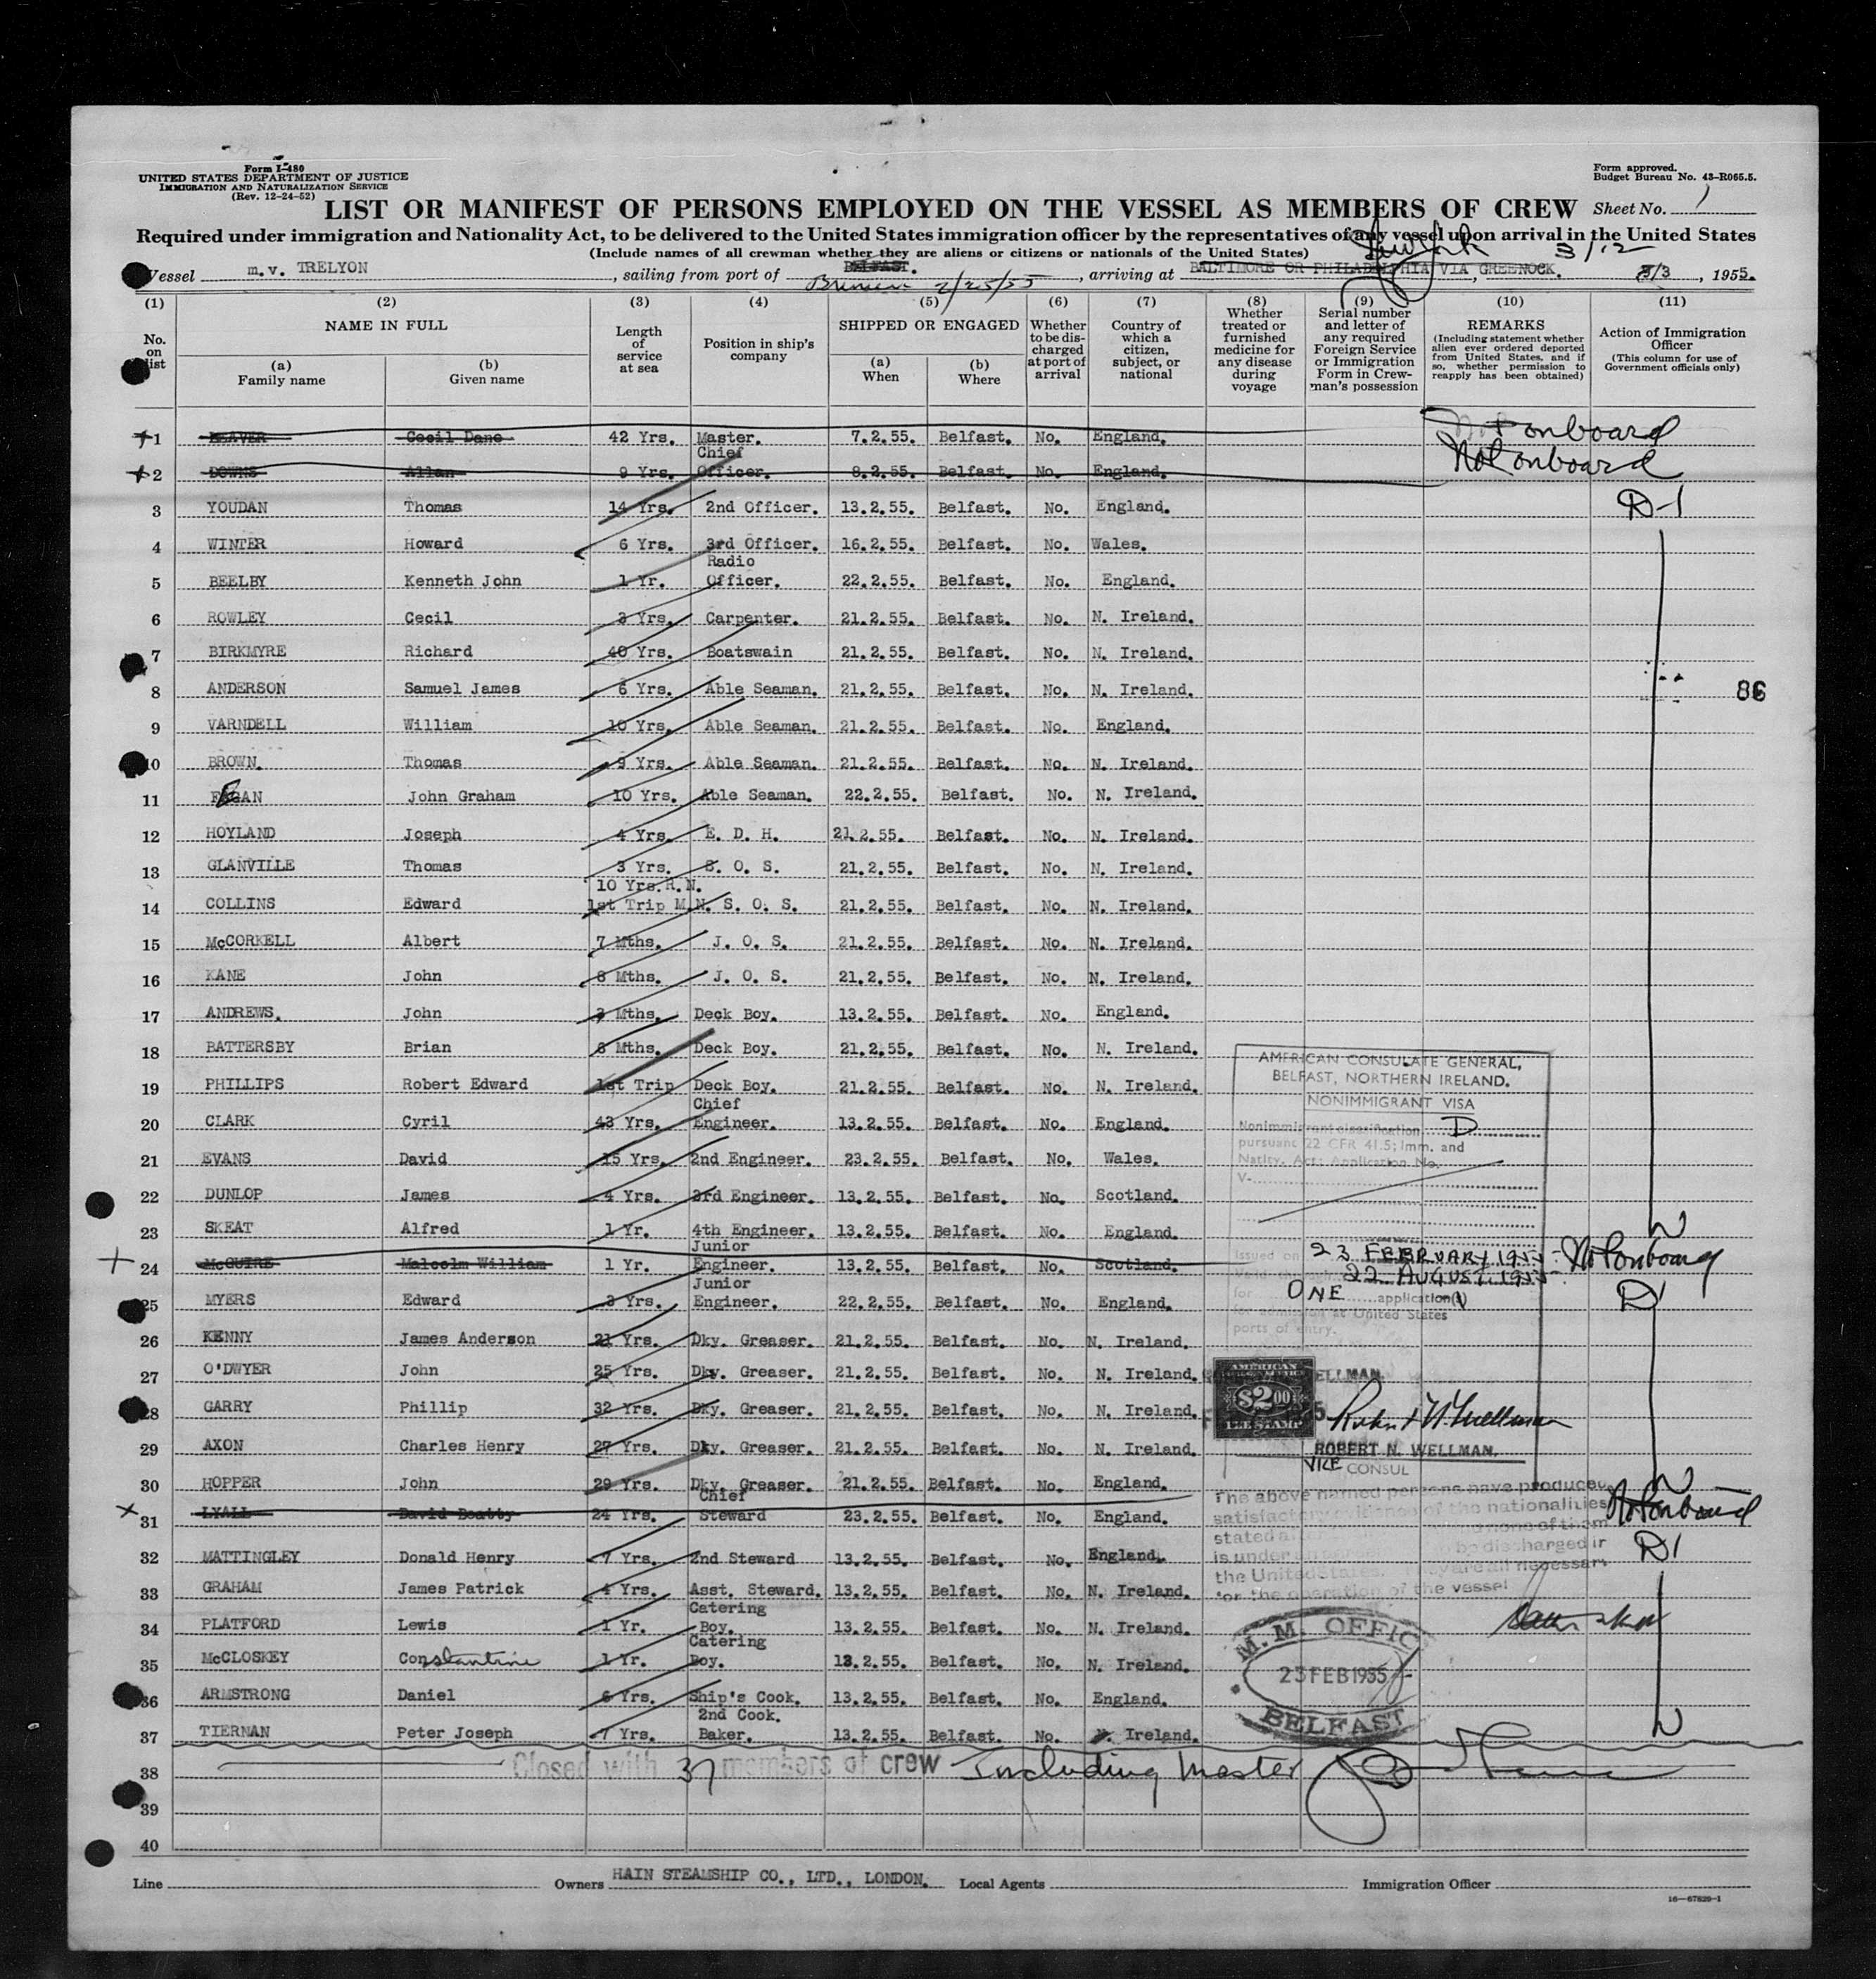 Form I-480
UNITED STATES DEPARTMENT OF JUSTICE
IMMIGRATION AND NATURALIZATION SERVICE
(Rev. 12-24-52)
Form approved.
Budget Bureau No. 43-R065.5.
LIST OR MANIFEST OF PERSONS EMPLOYED ON THE VESSEL AS MEMBERS OF CREW
Sheet No. 1
Required under immigration and Nationality Act, to be delivered to the United States immigration officer by the representatives of any vessel upon arrival in the United States
(Include names of all crewman whether they are aliens or citizens or nationals of the United States)
New York 3/12
Vessel m.v. TRELYON, sailing from port of BELFAST., arriving at BALTIMORE OR PHILADELPHIA VIA GREENOCK., 3/3, 1955.
Bremen 2/25/55
(1) (2) (3) (4) (5) (6) (7) (8) (9) (10) (11)
No. on list
NAME IN FULL
(a) Family name
(b) Given name
Length of service at sea
Position in ship's company
SHIPPED OR ENGAGED
(a) When
(b) Where
Whether to be discharged at port of arrival
Country of which a citizen, subject, or national
Whether treated or furnished medicine for any disease during voyage
Serial number and letter of any required Foreign Service or Immigration Form in Crewman's possession
REMARKS
(Including statement whether alien ever ordered deported from United States, and if so, whether permission to reapply has been obtained)
Action of Immigration Officer
(This column for use of Government officials only)
1 BEAVER Cecil Dane 42 Yrs. Master. 7.2.55. Belfast. No. England. Not onboard
2 DOWNS Allan 9 Yrs. Chief Officer. 8.2.55. Belfast. No. England. Not onboard
3 YOUDAN Thomas 14 Yrs. 2nd Officer. 13.2.55. Belfast. No. England. D-1
4 WINTER Howard 6 Yrs. 3rd Officer. 16.2.55. Belfast. No. Wales.
5 BEELBY Kenneth John 1 Yr. Radio Officer. 22.2.55. Belfast. No. England.
6 ROWLEY Cecil 3 Yrs. Carpenter. 21.2.55. Belfast. No. N. Ireland.
7 BIRKMYRE Richard 40 Yrs. Boatswain 21.2.55. Belfast. No. N. Ireland.
8 ANDERSON Samuel James 6 Yrs. Able Seaman. 21.2.55. Belfast. No. N. Ireland.
86
9 VARNDELL William 10 Yrs. Able Seaman. 21.2.55. Belfast. No. England.
10 BROWN. Thomas 9 Yrs. Able Seaman. 21.2.55. Belfast. No. N. Ireland.
11 John Graham 10 Yrs. Able Seaman. 22.2.55. Belfast. No. N. Ireland.
12 HOYLAND Joseph 4 Yrs. E. D. H. 21.2.55. Belfast. No. N. Ireland.
13 GLANVILLE Thomas 3 Yrs. S. O. S. 21.2.55. Belfast. No. N. Ireland.
14 COLLINS Edward 10 Yrs. R.N. 1st Trip M.N. S. O. S. 21.2.55. Belfast. No. N. Ireland.
15 McCORKELL Albert 7 Mths. J. O. S. 21.2.55. Belfast. No. N. Ireland.
16 KANE John 8 Mths. J. O. S. 21.2.55. Belfast. No. N. Ireland.
17 ANDREWS. John 3 Mths. Deck Boy. 13.2.55. Belfast. No. England.
18 BATTERSBY Brian 8 Mths. Deck Boy. 21.2.55. Belfast. No. N. Ireland.
19 PHILLIPS Robert Edward 1st Trip Deck Boy. 21.2.55. Belfast. No. N. Ireland.
20 CLARK Cyril 43 Yrs. Chief Engineer. 13.2.55. Belfast. No. England.
21 EVANS David 15 Yrs. 2nd Engineer. 23.2.55. Belfast. No. Wales.
22 DUNLOP James 4 Yrs. 3rd Engineer. 13.2.55. Belfast. No. Scotland.
23 SKEAT Alfred 1 Yr. 4th Engineer. 13.2.55. Belfast. No. England.
24 McGUIRE Malcolm William 1 Yr. Junior Engineer. 13.2.55. Belfast. No. Scotland. Not onboard
25 MYERS Edward 3 Yrs. Junior Engineer. 22.2.55. Belfast. No. England. D1
26 KENNY James Anderson 21 Yrs. Dky. Greaser. 21.2.55. Belfast. No. N. Ireland.
27 O'DWYER John 25 Yrs. Dky. Greaser. 21.2.55. Belfast. No. N. Ireland.
28 GARRY Phillip 32 Yrs. Dky. Greaser. 21.2.55. Belfast. No. N. Ireland.
29 AXON Charles Henry 27 Yrs. Dky. Greaser. 21.2.55. Belfast. No. N. Ireland.
30 HOPPER John 29 Yrs. Dky. Greaser. 21.2.55. Belfast. No. England.
31 LYALL David Beatty 24 Yrs. Chief Steward 23.2.55. Belfast. No. England. Not onboard
32 MATTINGLEY Donald Henry 7 Yrs. 2nd Steward 13.2.55. Belfast. No. England. D1
33 GRAHAM James Patrick 4 Yrs. Asst. Steward. 13.2.55. Belfast. No. N. Ireland.
34 PLATFORD Lewis 1 Yr. Catering Boy. 13.2.55. Belfast. No. N. Ireland.
35 McCLOSKEY Constantine 1 Yr. Catering Boy. 13.2.55. Belfast. No. N. Ireland.
36 ARMSTRONG Daniel 6 Yrs. Ship's Cook. 13.2.55. Belfast. No. England.
37 TIERNAN Peter Joseph 7 Yrs. 2nd Cook. Baker. 13.2.55. Belfast. No. Ireland.
38 Closed with 37 members of crew Including Master
39
40
AMERICAN CONSULATE GENERAL,
BELFAST, NORTHERN IRELAND.
NONIMMIGRANT VISA
Nonimmigrant classification D
pursuant 22 CFR 41.5; Imm. and
Natlty. Act; Application No.
V-
Issued on 23 FEBRUARY 1955
22 AUGUST 1955
for ONE application(s)
for admission at United States
ports of entry.
AMERICAN
$2.00
FEE STAMP
ELLMAN
Robert N. Wellman
ROBERT N. WELLMAN,
VICE CONSUL
The above named persons have produced
satisfactory evidence of the nationalities
stated and none of them
is under to be discharged in
the United States. They are all necessary
for the operation of the vessel
M.M. OFFICE
23 FEB 1955
BELFAST
Line
Owners HAIN STEAMSHIP CO., LTD., LONDON.
Local Agents
Immigration Officer
16-67829-1